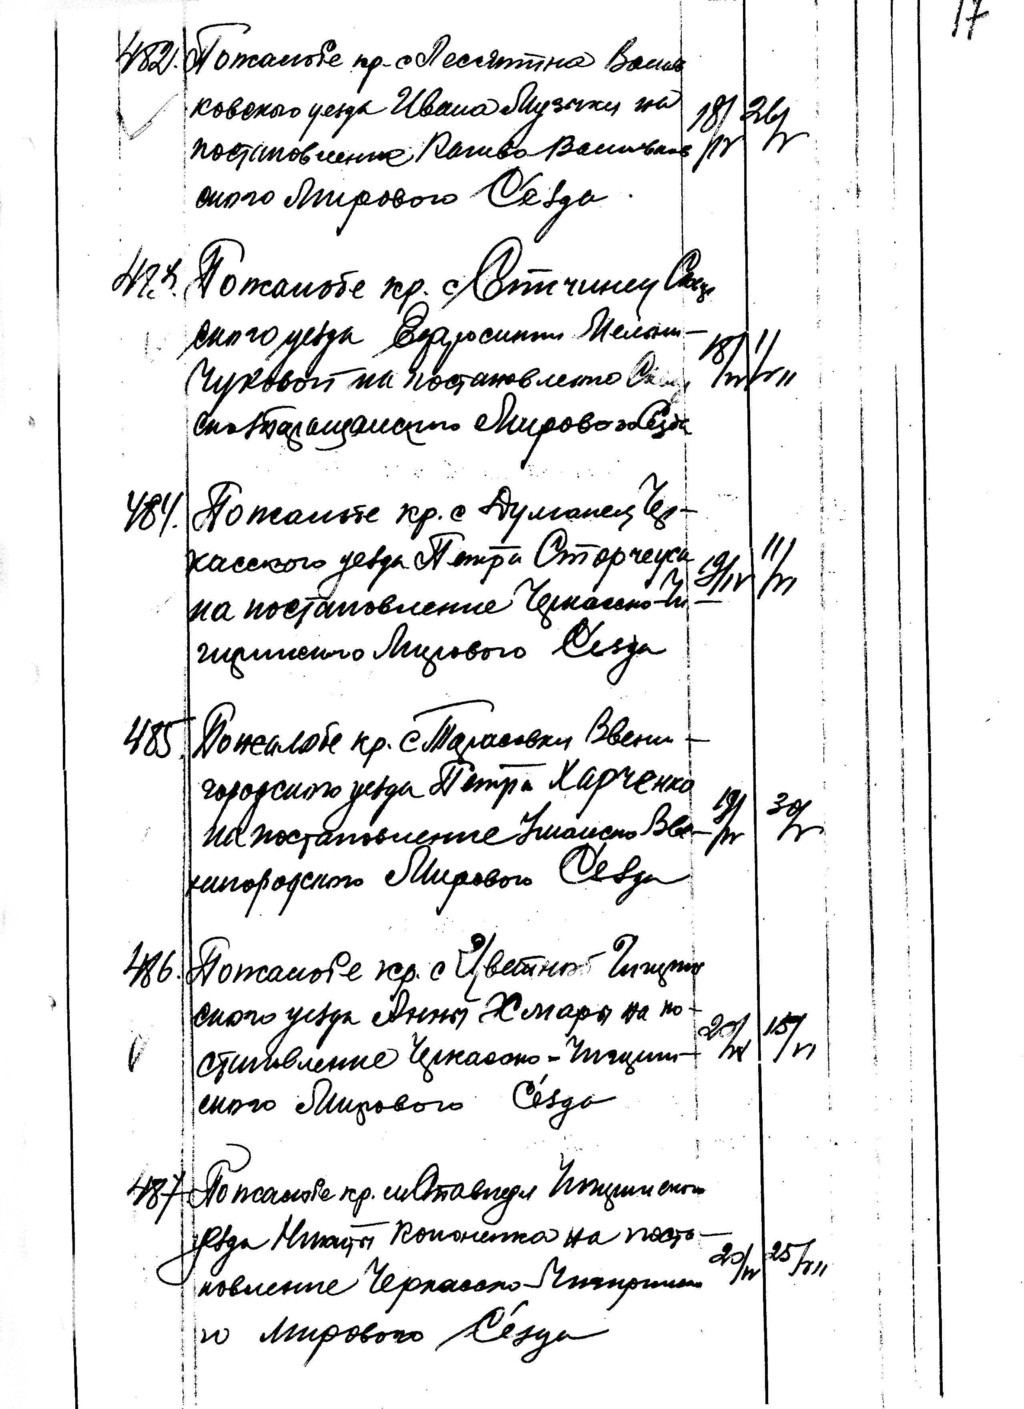 17
482. По жалобе кр. с Песчятина Василь
ковского уезда Ивана Музычки на
постановление Киево Васильков
ского Мирового Сѣзда.
18/IV 26/V
483. По жалобе кр. с Отчину Сквир
ского уезда Ефросинии Мельни-
чуковой на постановление
ско Таращанского Мирового Сѣзда
18/IV 11/VII
484. По жалобе кр. с Думанец Чер-
касского уезда Петра Сторчеука
на постановление Черкасско-Чи-
гиринского Мирового Сѣзда
19/IV 11/VI
485. По жалобе кр. с Тарасовки Звени-
городского уезда Петра Харченко
на постановление Уманско Зве-
нигородского Мирового Сѣзда
19/IV 30/V
486. По жалобе кр. с Цветной Чигирин
ского уезда Анны Хмары на по-
становление Черкасско-Чигирин-
ского Мирового Сѣзда
20/IV 15/VI
487. По жалобе кр. м Чигиринского
уезда Никиты Кононенка на поста-
новление Черкасско-Чигиринско
го Мирового Сѣзда
20/IV 25/VII